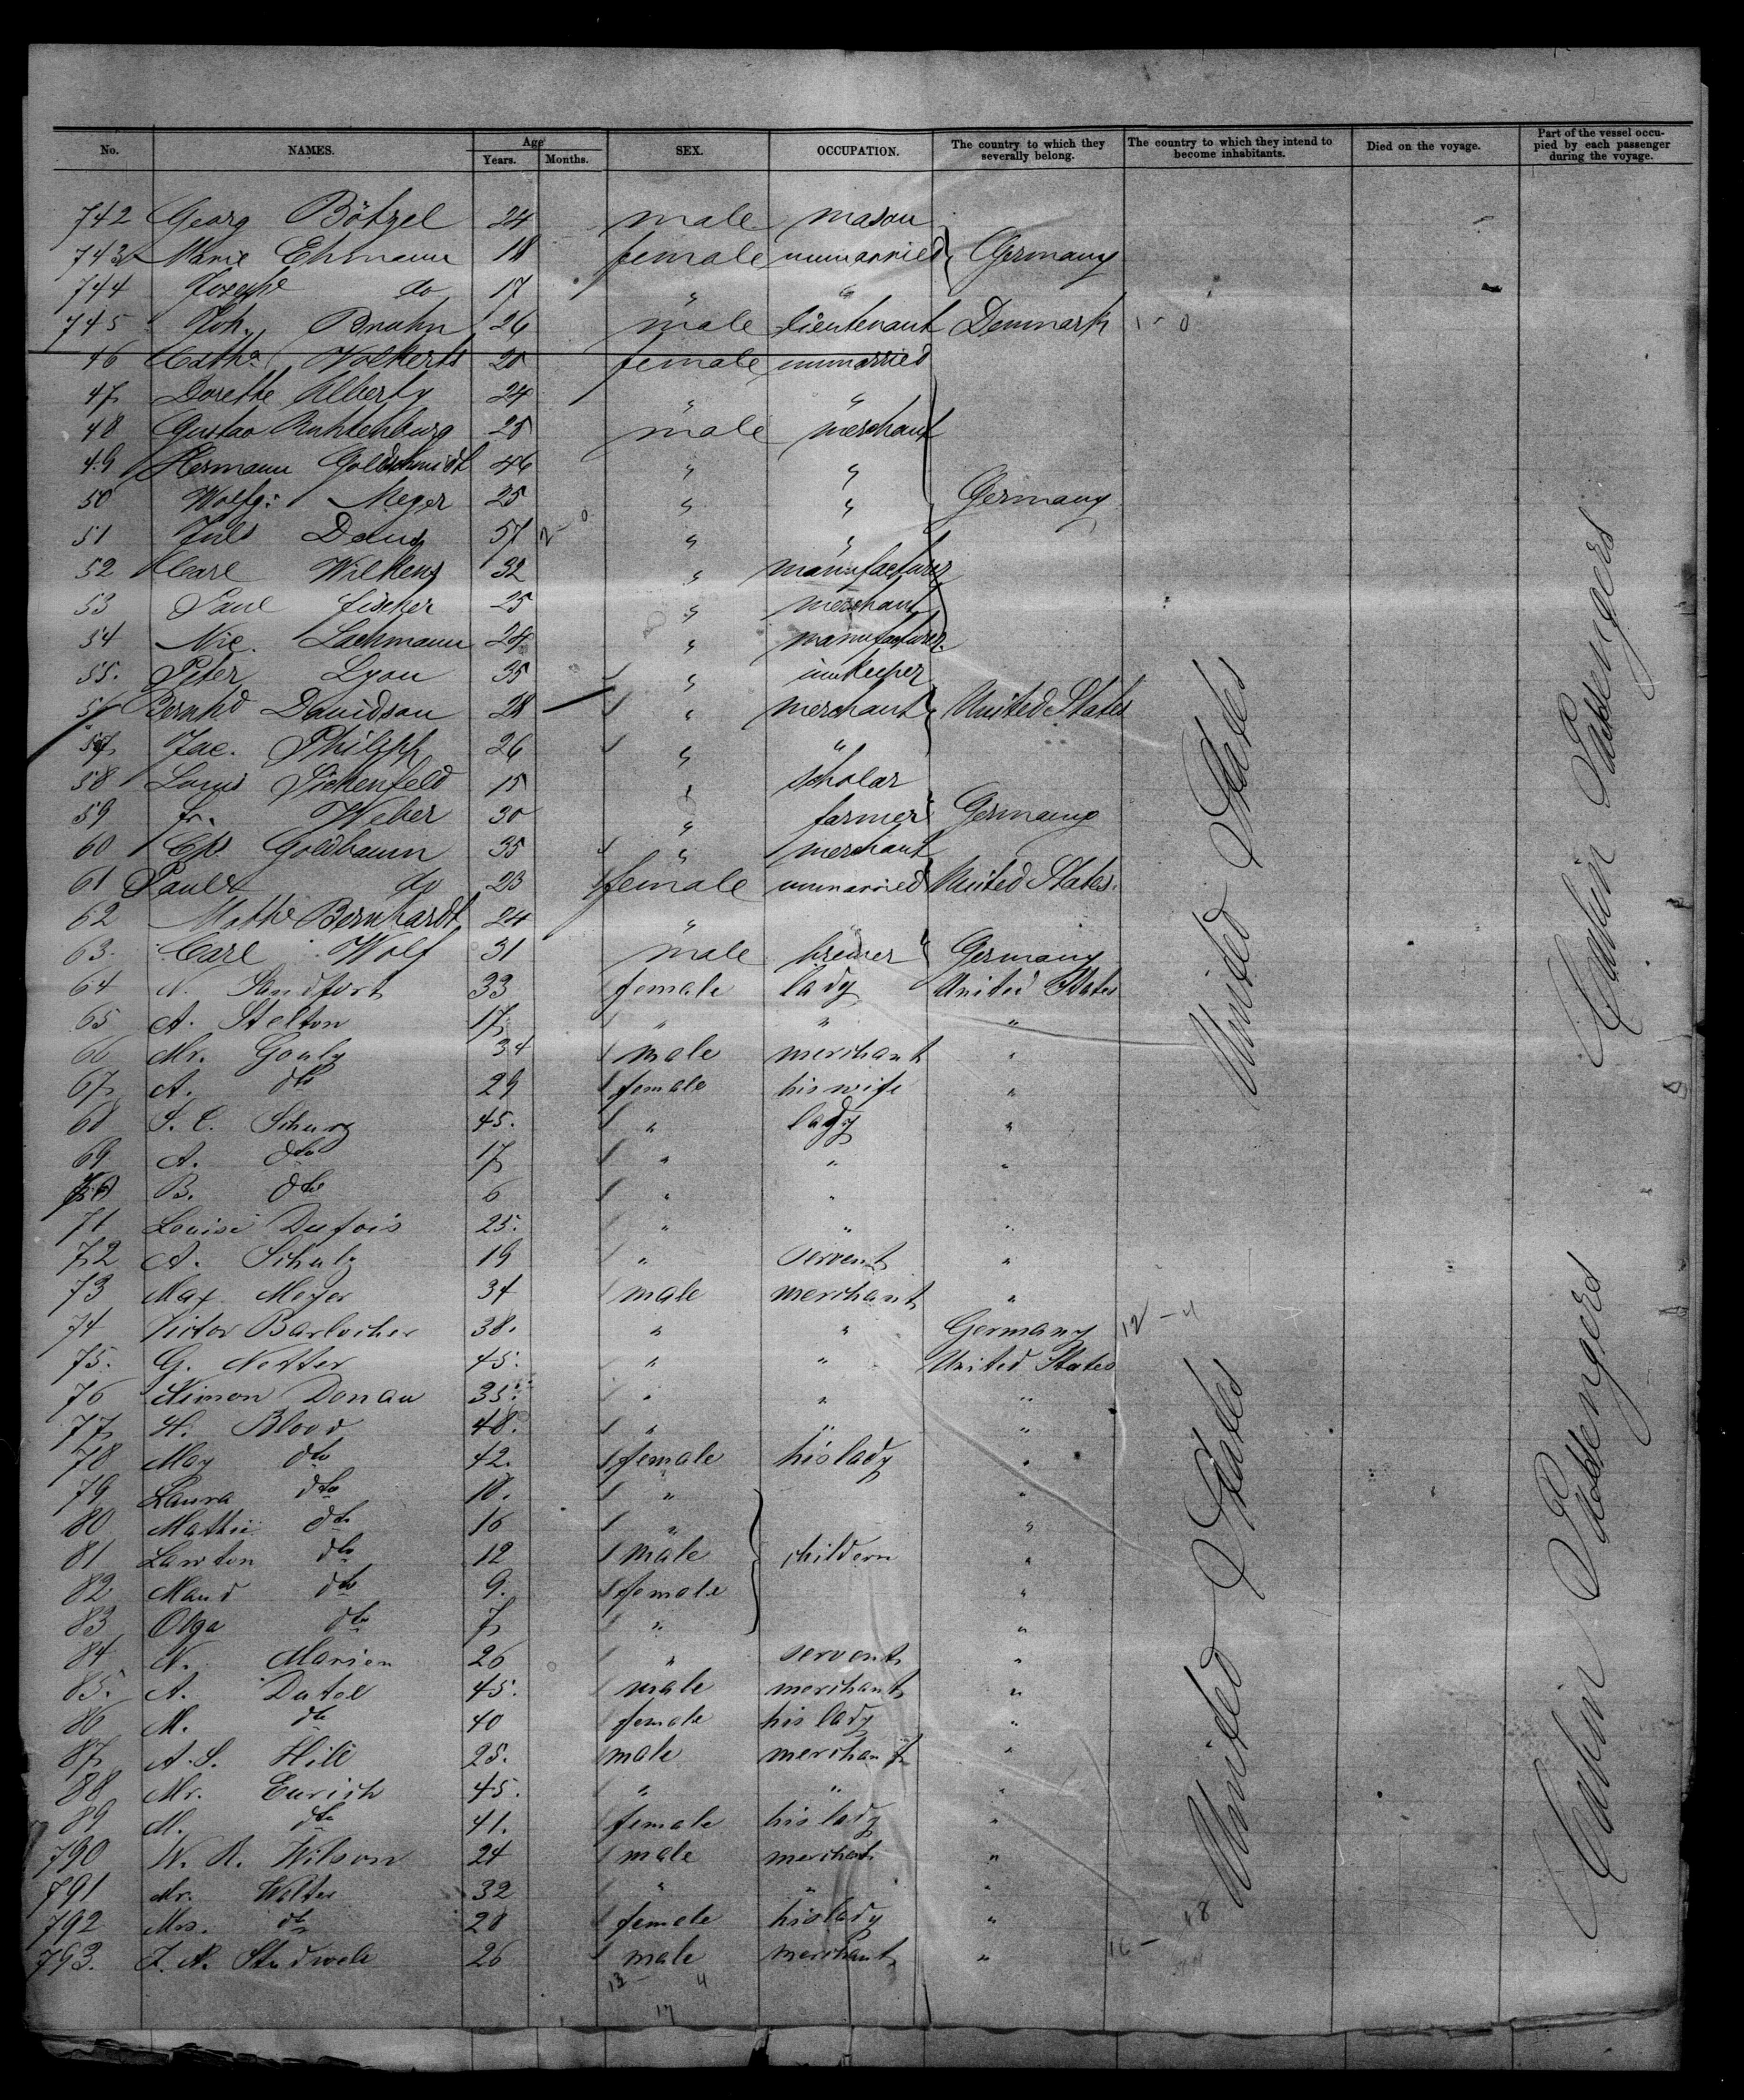 No. NAMES. Age Years. Months. SEX. OCCUPATION. The country to which they severally belong. The country to which they intend to become inhabitants. Died on the voyage. Part of the vessel occupied by each passenger during the voyage.
742 Georg Bötzel 24 male mason
743 Marie Ehmann 18 female unmarried Germany
744 Josephe do 17 " "
745 Joh. Bruhn 26 male lieutenant Denmark 1 - 0
46 Cathe Volkerts 20 female unmarried
47 Dorethe Alberty 24 " "
48 Gustav Ruhtenburg 28 male merchant
49 Hermann Goldschmidt 46 " "
50 Wolfg: Meyer 25 " " Germany
51 Juls 57 2 - 0 " "
52 Carl Wilkens 32 " manufacturer
53 Paul Fischer 25 " merchant
54 Nic. Lachmann 24 " manufacturer
55. Peter Lyon 35 " innkeeper
56 Bernhd Davidson 28 " merchant United States
57 Jac. Philipp 26 " "
58 Louis Sichenfeld 15 " scholar
59 Fr. Weber 30 " farmer Germany
60 Goldbaum 35 " merchant
61 do 23 female unmarried United States.
62 Mathe Bernhardt 24 "
63. Carl Wolf 31 male Germany
64 N. Sandfort 33 female lady United States
65 A. Stelton 17 " " "
66 Mr. Gouly 34 male merchant "
67 A. dto 29 female his wife "
68 S. C. Schurz 45. " lady "
69 A. dto 17 " " "
70 B. dto 6 " "
71 Louise Dufois 25. " " "
72 A. Schulz 19 " servent "
73 Max Meyer 34 male merchant "
74 Victor Barlocher 38. " " Germany 12 - 4
75. G. Netter 45. " " United States
76 Simon Donau 35. " " "
77 H. Blood 48. " "
78 May dto 42. female his lady "
79 Laura dto 18. " "
80 Mathie dto 16 " "
81 Lawton dto 12 male childern "
82 Maud dto 9. female "
83 Olga dto 7 " "
84 N. Marien 26 " servent "
85. A. Dutel 45. male merchant "
86 M. dto 40 female his lady "
87 A. S. Hill 25. male merchant "
88 Mr. Eurich 45. " " "
89 M. dto 41. female his lady "
790 W. R. Wilson 24 male merchant "
791 Mr. Walter 32 " " "
792 Mrs. dto 28 female his lady "
793. Studwell 26 male merchant "
13 - 4
17
United States
United States
Cabin Passengers
Cabin Passengers